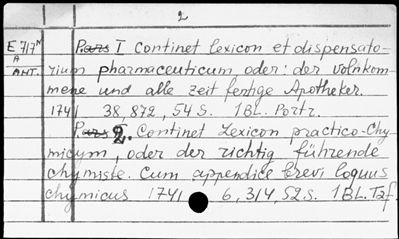 2
E 717ᴺ Pars I Continet lexicon et dispensato-
A rium pharmaceuticum, oder: der volnkom-
ANT. mene und alle zeit fertige Apotheker.
1741 38, 872, 54 S. 1 BL. Portr.
Pars 2. Continet Lexicon practico-Chy-
micym, oder der richtig führende
chymiste. Cum appendice brevi loquus
chymicus 1741 6, 314, 52 S. 1 BL. Taf.